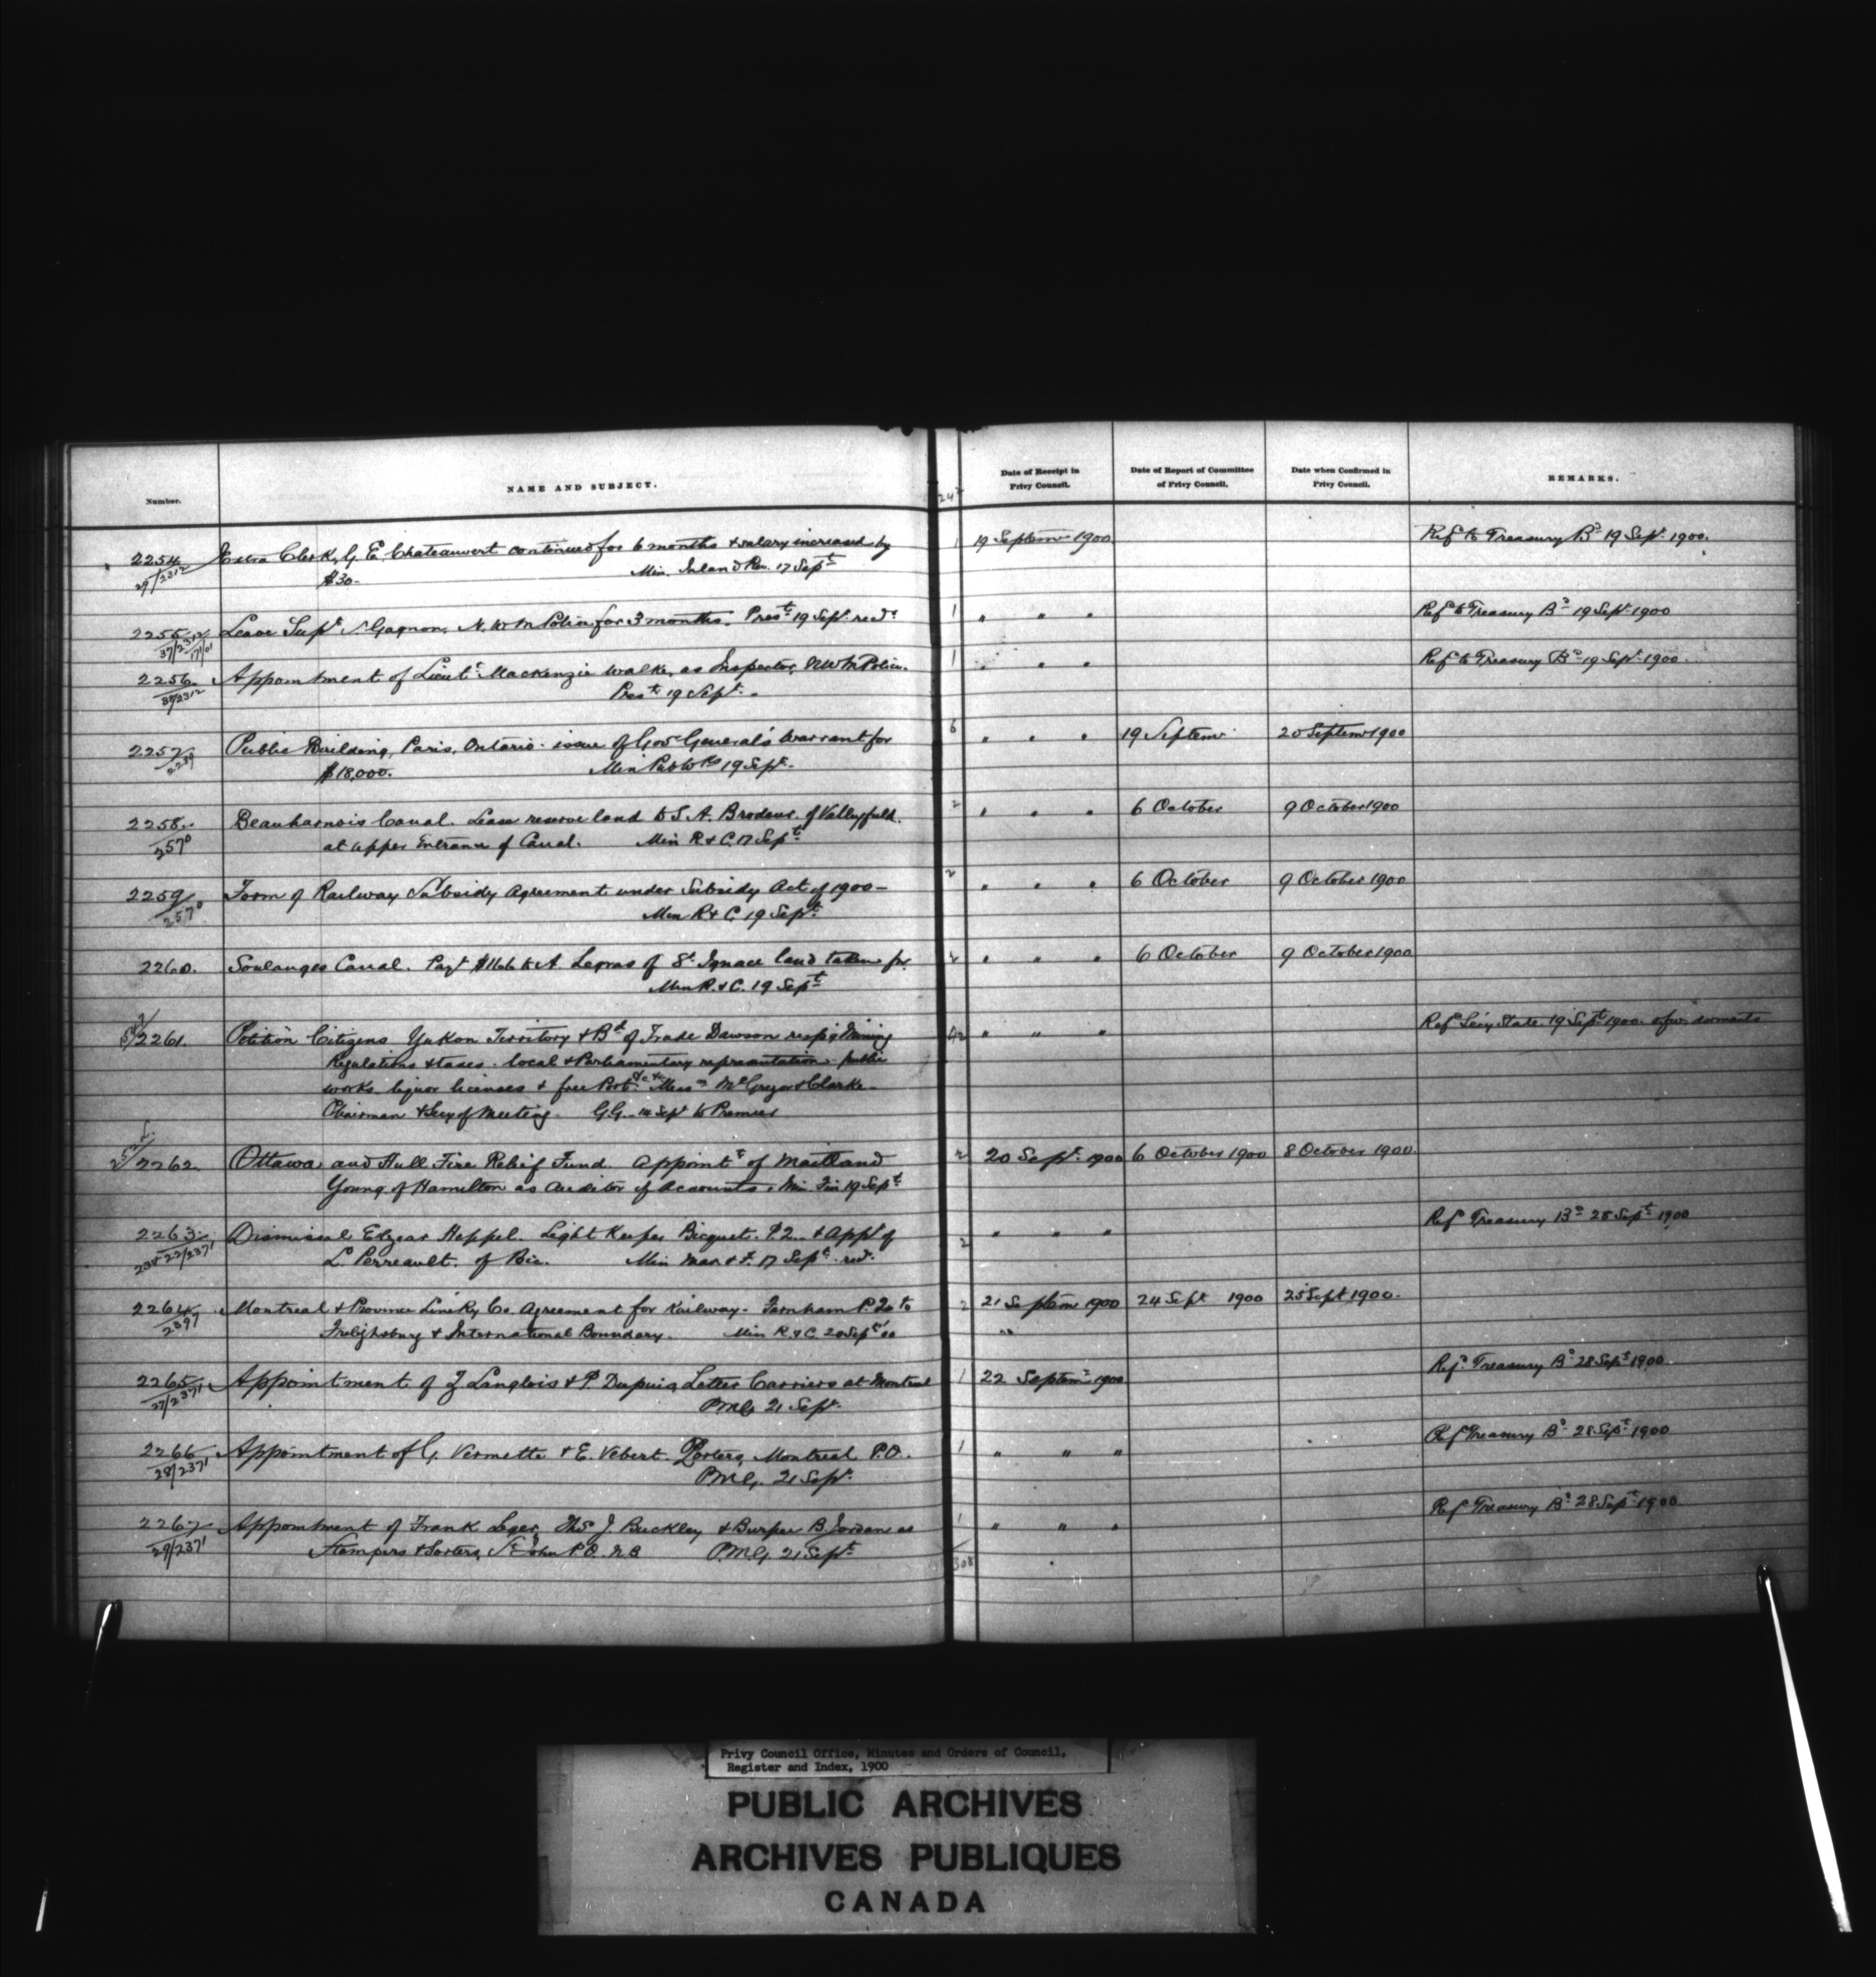 Number. NAME AND SUBJECT. Date of Receipt in Privy Council. Date of Report of Committee of Privy Council. Date when Confirmed in Privy Council. REMARKS.
2254 Extra Clerk, G. E. Chateauvert continued for 6 months & salary increased by 1 19 Septemr 1900 Ref to Treasury Bd 19 Sept. 1900.
29/2312 $30- Min. Inland Rev. 17 Sept
2255 Leave Supt S. Gagnon, N. W. M Police for 3 months. Prest 19 Sept. recd 1 " " " Ref to Treasury Bd 19 Sept. 1900
37/2312
2256 Appointment of Lieut. Mackenzie Walke, as Inspector, NWM Police. 1 " " " Ref to Treasury Bd 19 Sept. 1900.
38/2312 Prest 19 Sept.
2257 Public Building, Paris, Ontario - issue of Gov General's Warrant for 6 " " " 19 Septemr 20 Septemr 1900
2289 $18,000. Min Pub Wks 19 Sept.
2258 Beauharnois Canal. Lease reserve land to S. A. Brodeur of Valleyfield. 2 " " " 6 October 9 October 1900
2570 at upper Entrance of Canal. Min R & C. 17 Sept
2259 Form of Railway Subsidy Agreement under Subsidy Act of 1900- 2 " " " 6 October 9 October 1900
2570 Min R & C, 19 Sept
2260. Soulanges Canal. Payt $1166 to A. Legras of St. Ignace land taken for " " " 6 October 9 October 1900
Min R. & C. 19 Sept
2261. Petition Citizens Yukon Territory & Bd of Trade Dawson respg Mining 42 " " " Ref Secy State 19 Sept 1900.
Regulations & taxes. local & Parliamentary representation - public
works liquor licenses & free Port. &c &c Messrs McGregor & Clarke-
Chairman & Secy of Meeting. G.G. 14 Sept to Premier
2262. Ottawa and Hull Fire Relief Fund. Appointt of Maitland 2 20 Sept. 1900 6 October 1900 8 October 1900
Young of Hamilton as Auditor of Accounts. Min. Fin 19 Sept
2263 Dismissal Elzear Heppel. Light Keeper Bicquet. P.2. & Appt of 2 " " " Ref Treasury Bd 28 Sept 1900
23 & 22/2371 L. Perreault. of Bic. Min Mar. & F. 17 Sept. recd.
2264 Montreal & Province Line Ry Co. Agreement for Railway - Farnham P.2 to 2 21 Septem 1900 24 Sept 1900 25 Sept 1900.
2397 Frelighsburg & International Boundary. Min R & C. 20 Sept '00 "
2265 Appointment of Z Langlois & P. Dupuis, Letter Carriers at Montreal 1 22 Septemr 1900 Ref. Treasury Bd 28 Sept 1900
27/2371 PMG 21 Sept.
2266 Appointment of G. Vermette & E. Vebert. Porters, Montreal P.O. 1 " " " Ref Treasury Bd 28 Sept 1900
28/2371 PMG. 21 Sept.
2267 Appointment of Frank Leger, Thos J. Buckley & Burpee B. Jordan as 1 " " " Ref Treasury Bd 28 Sept 1900
29/2371 Stampers & Sorters, St John P.O. N.B PMG 21 Sept.
308
Privy Council Office, Minutes and Orders of Council,
Register and Index, 1900
PUBLIC ARCHIVES
ARCHIVES PUBLIQUES
CANADA